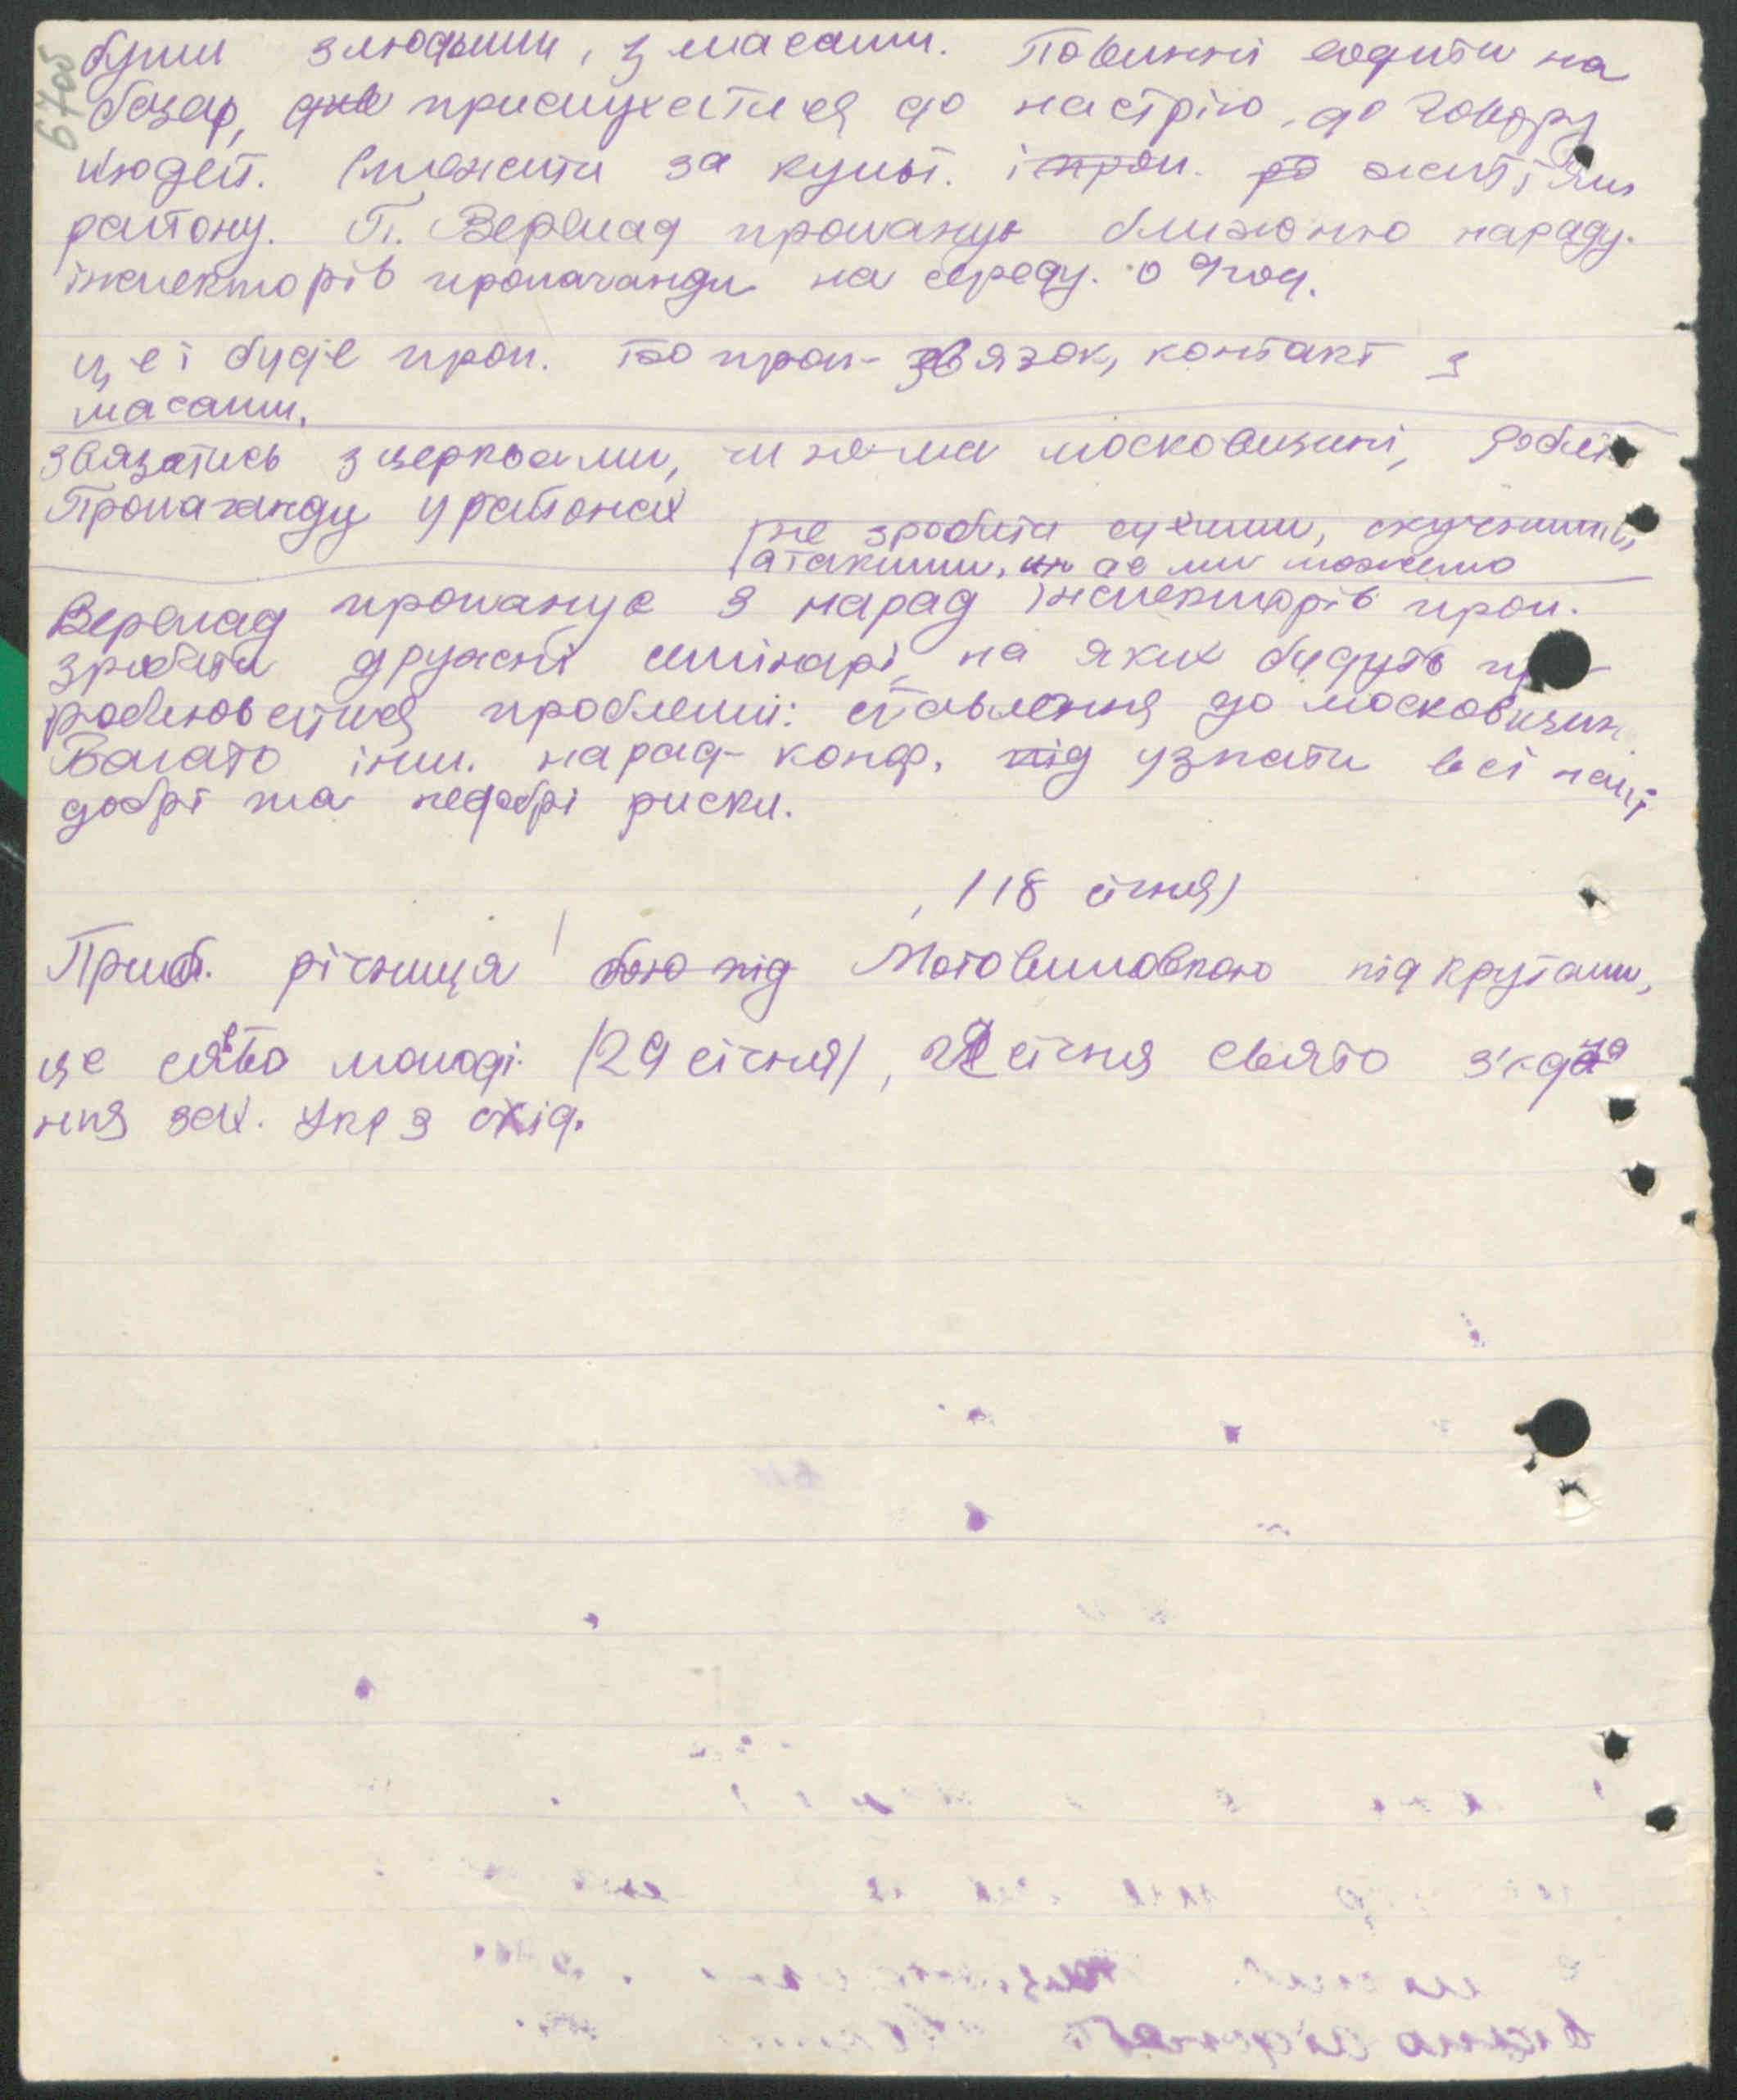 67об
були з людьми, з масами. Повинні ходити на
базар, для прислухатися до настрію, до говору
людей. Стежити за культ. і проп. ро життям
району. П. Верлад пропанує ближчю нараду
інспекторів пропаганди на середу. о 9 год.
це і буде проп. бо проп - звязок, контакт з
масами.
звязатись з церквами, чи нема московщини, робити
Пропаганду у районах
не зробити сухими, скучними,
а такими, де ми можемо
Верлад пропанує з нарад інспекторів проп.
зробити дружні семінарі, на яких будуть
роблюватися проблеми: ставлення до московщин.
Багато інш. нарад - конф. під узнати всі наші
добрі та недобрі риски.
(18 січня)
Прибл. річниця бою під Мотовиловкою під Крутами,
це свято молоді (29 січня), 22 січня свято з'єдна
ння зах. Укр з схід.